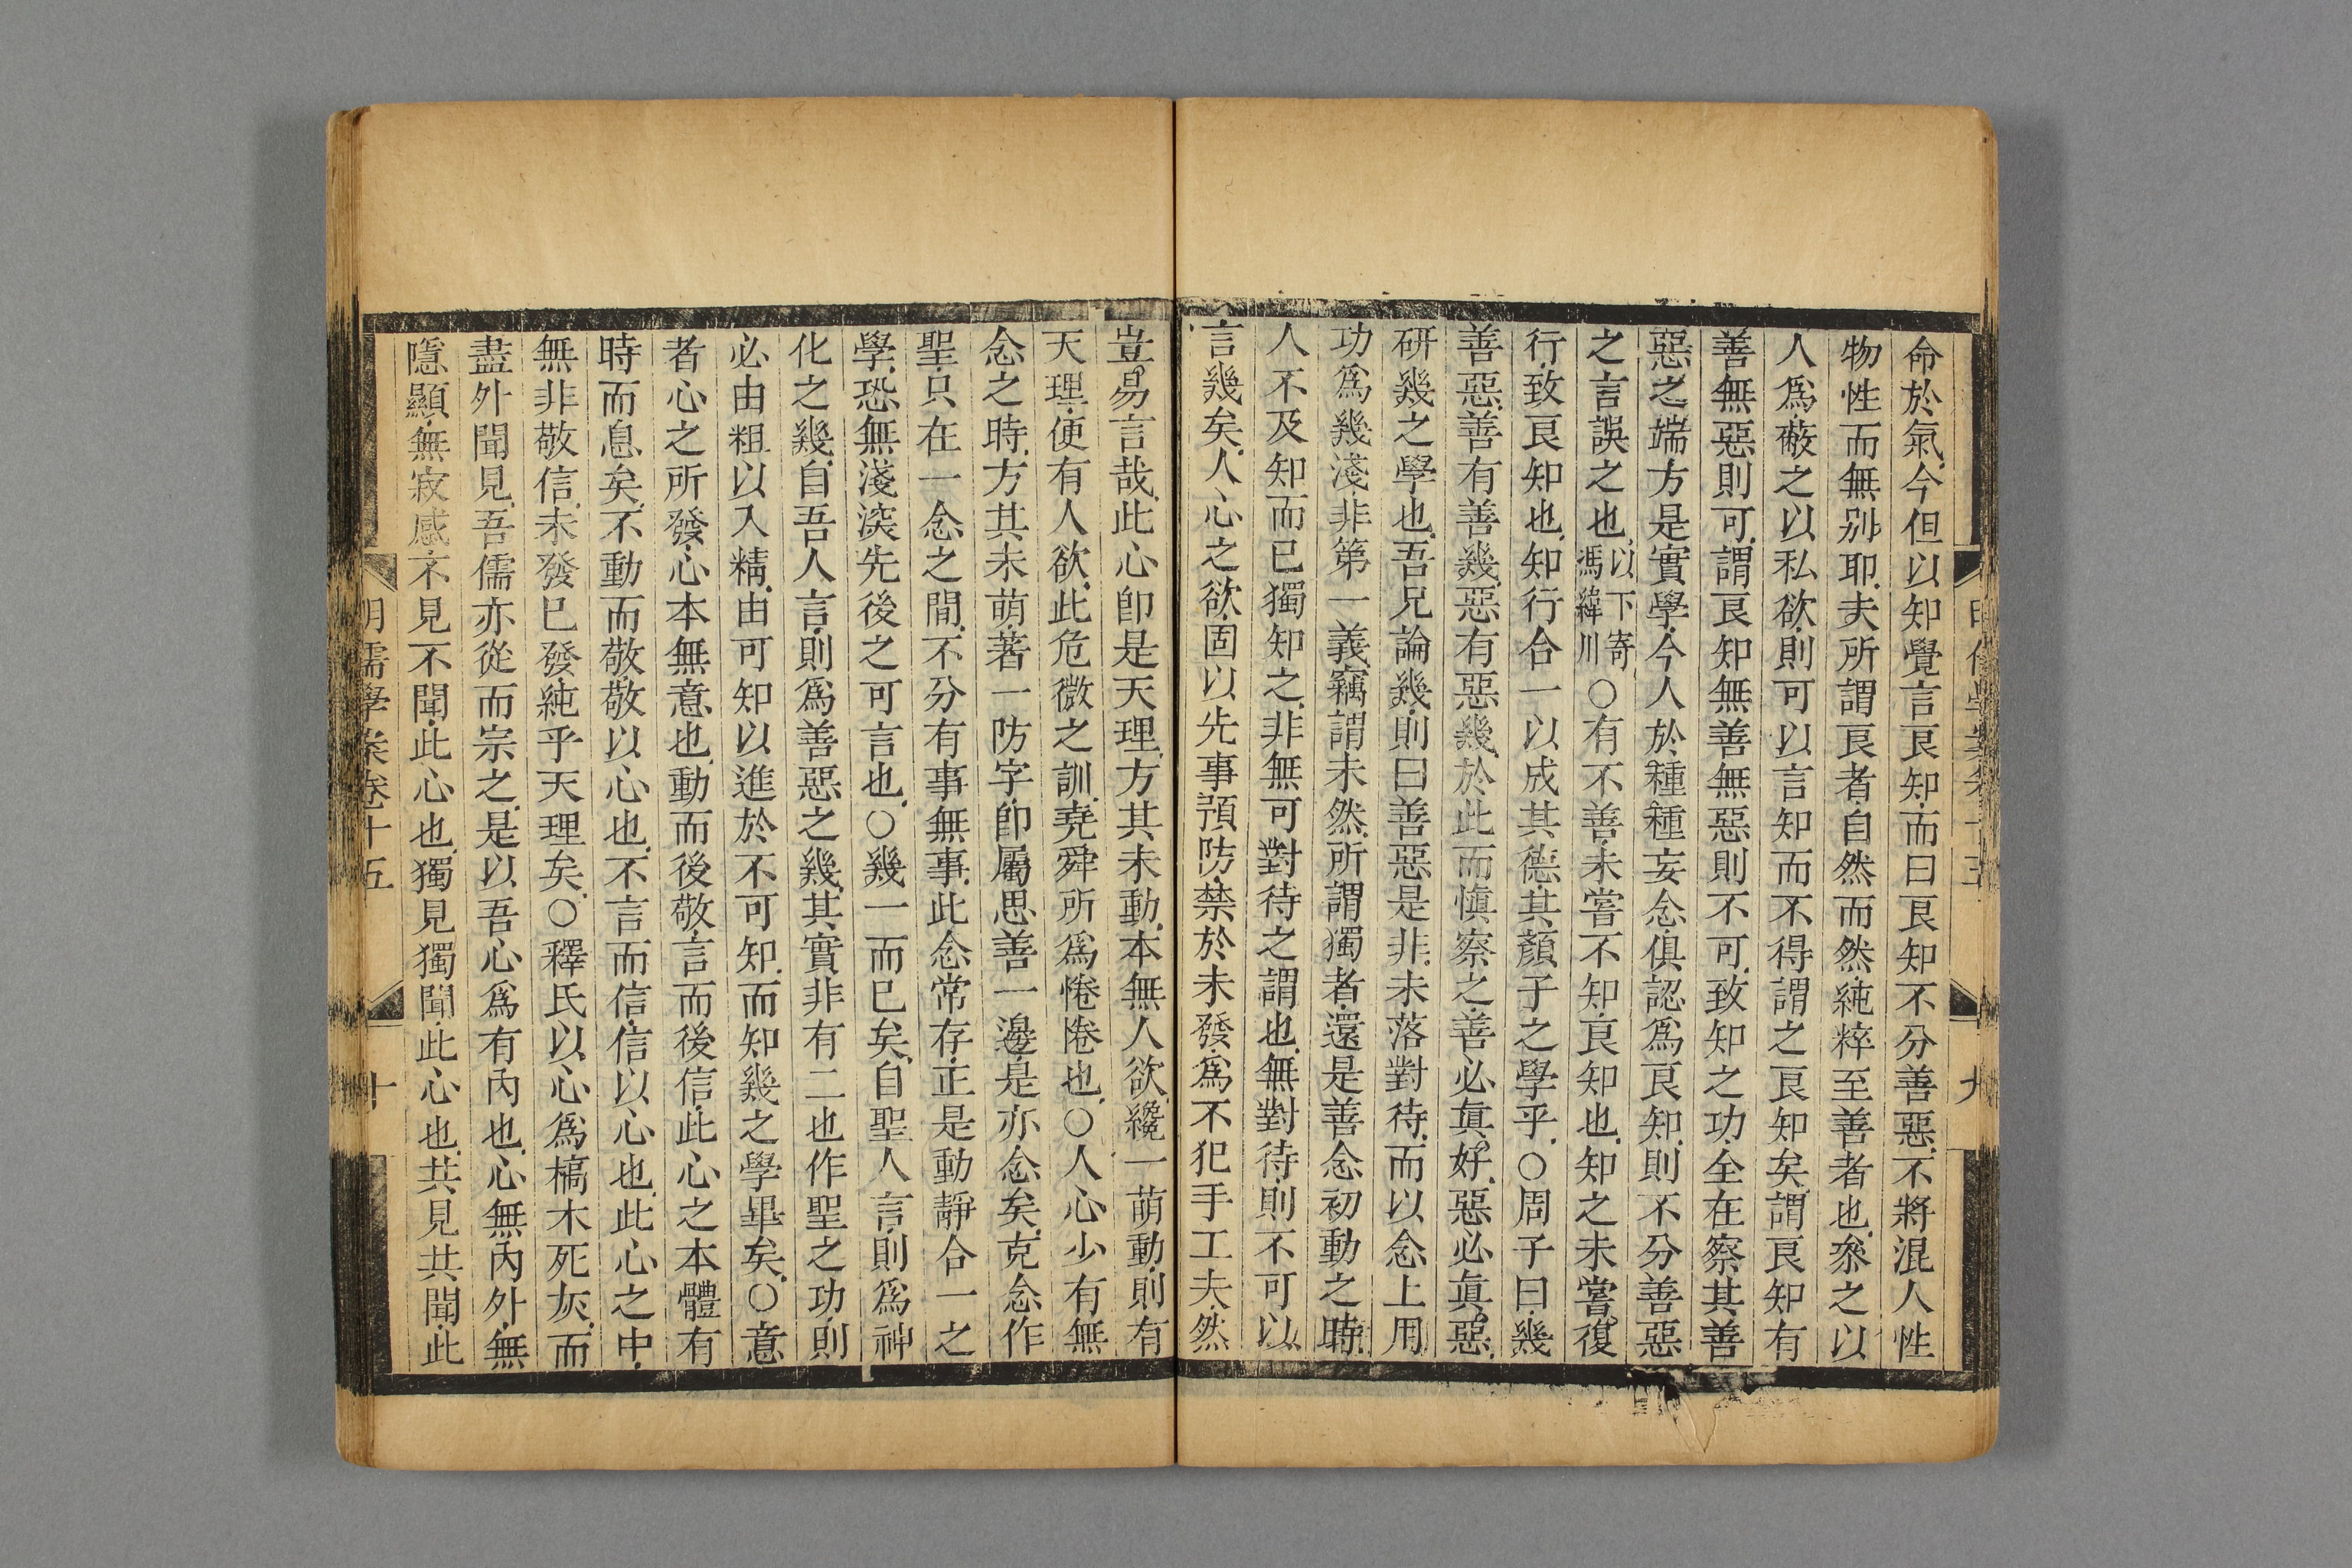 命於氣今但以知覺言良知而曰良知不分善惡不將混人性
物性而無別耶夫所謂良者自然而然純粹至善者也參之以
人爲蔽之以私欲則可以言知而不得謂之良知矣謂良知有
善無惡則可謂良知無善無惡則不可致知之功全在察其善
惡之端方是實學今人於種種妄念俱認爲良知則不分善惡
之言誤之也以下寄馮緯川○有不善未嘗不知良知也知之未嘗復
行致良知也知行合一以成其德其顏子之學乎○周子曰幾
善惡善有善幾惡有惡幾於此而愼察之善必眞好惡必眞惡
研幾之學也吾兄論幾則曰善惡是非未落對待而以念上用
功爲幾淺非第一義竊謂未然所謂獨者還是善念初動之時
人不及知而已獨知之非無可對待之謂也無對待則不可以
言幾矣人心之欲固以先事預防禁於未發爲不犯手工夫然
豈易言哉此心卽是天理方其未動本無人欲纔一萌動則有
天理便有人欲此危微之訓堯舜所爲惓惓也○人心少有無
念之時方其未萌著一防字卽屬思善一邊是亦念矣克念作
聖只在一念之間不分有事無事此念常存正是動靜合一之
學恐無淺深先後之可言也○幾一而已矣自聖人言則爲神
化之幾自吾人言則爲善惡之幾其實非有二也作聖之功則
必由粗以入精由可知以進於不可知而知幾之學畢矣○意
者心之所發心本無意也動而後敬言而後信此心之本體有
時而息矣不動而敬敬以心也不言而信信以心也此心之中
無非敬信未發已發純乎天理矣○釋氏以心爲槁木死灰而
盡外聞見吾儒亦從而宗之是以吾心爲有內也心無內外無
隱顯無寂感不見不聞此心也獨見獨聞此心也共見共聞此
明儒學案卷十五
十